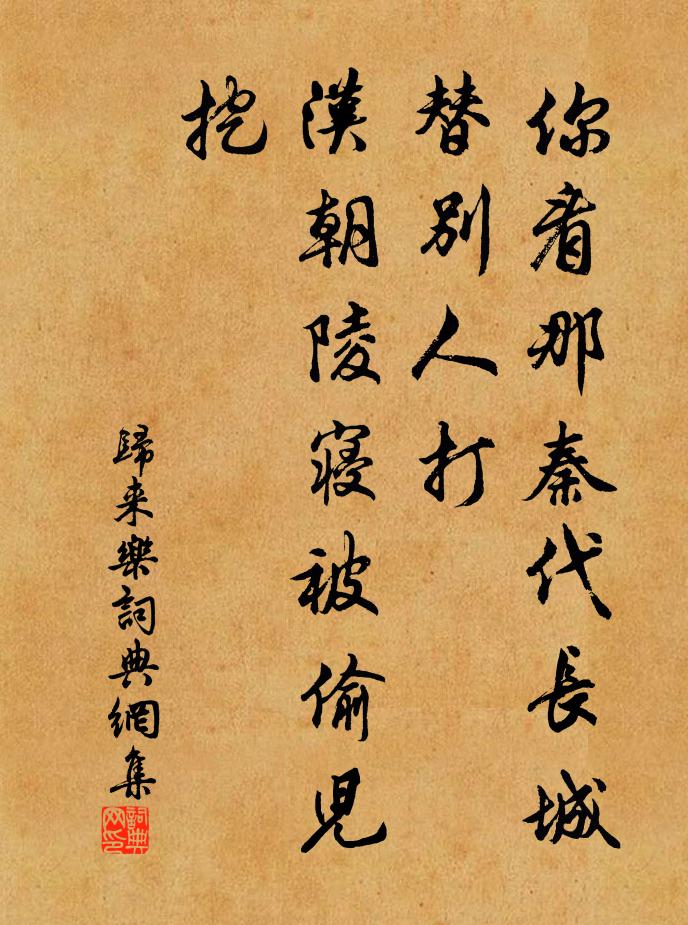 你看那秦代長城
替別人打
漢朝陵寢被偷兒
挖
歸来樂詞典網集
詞典
网印